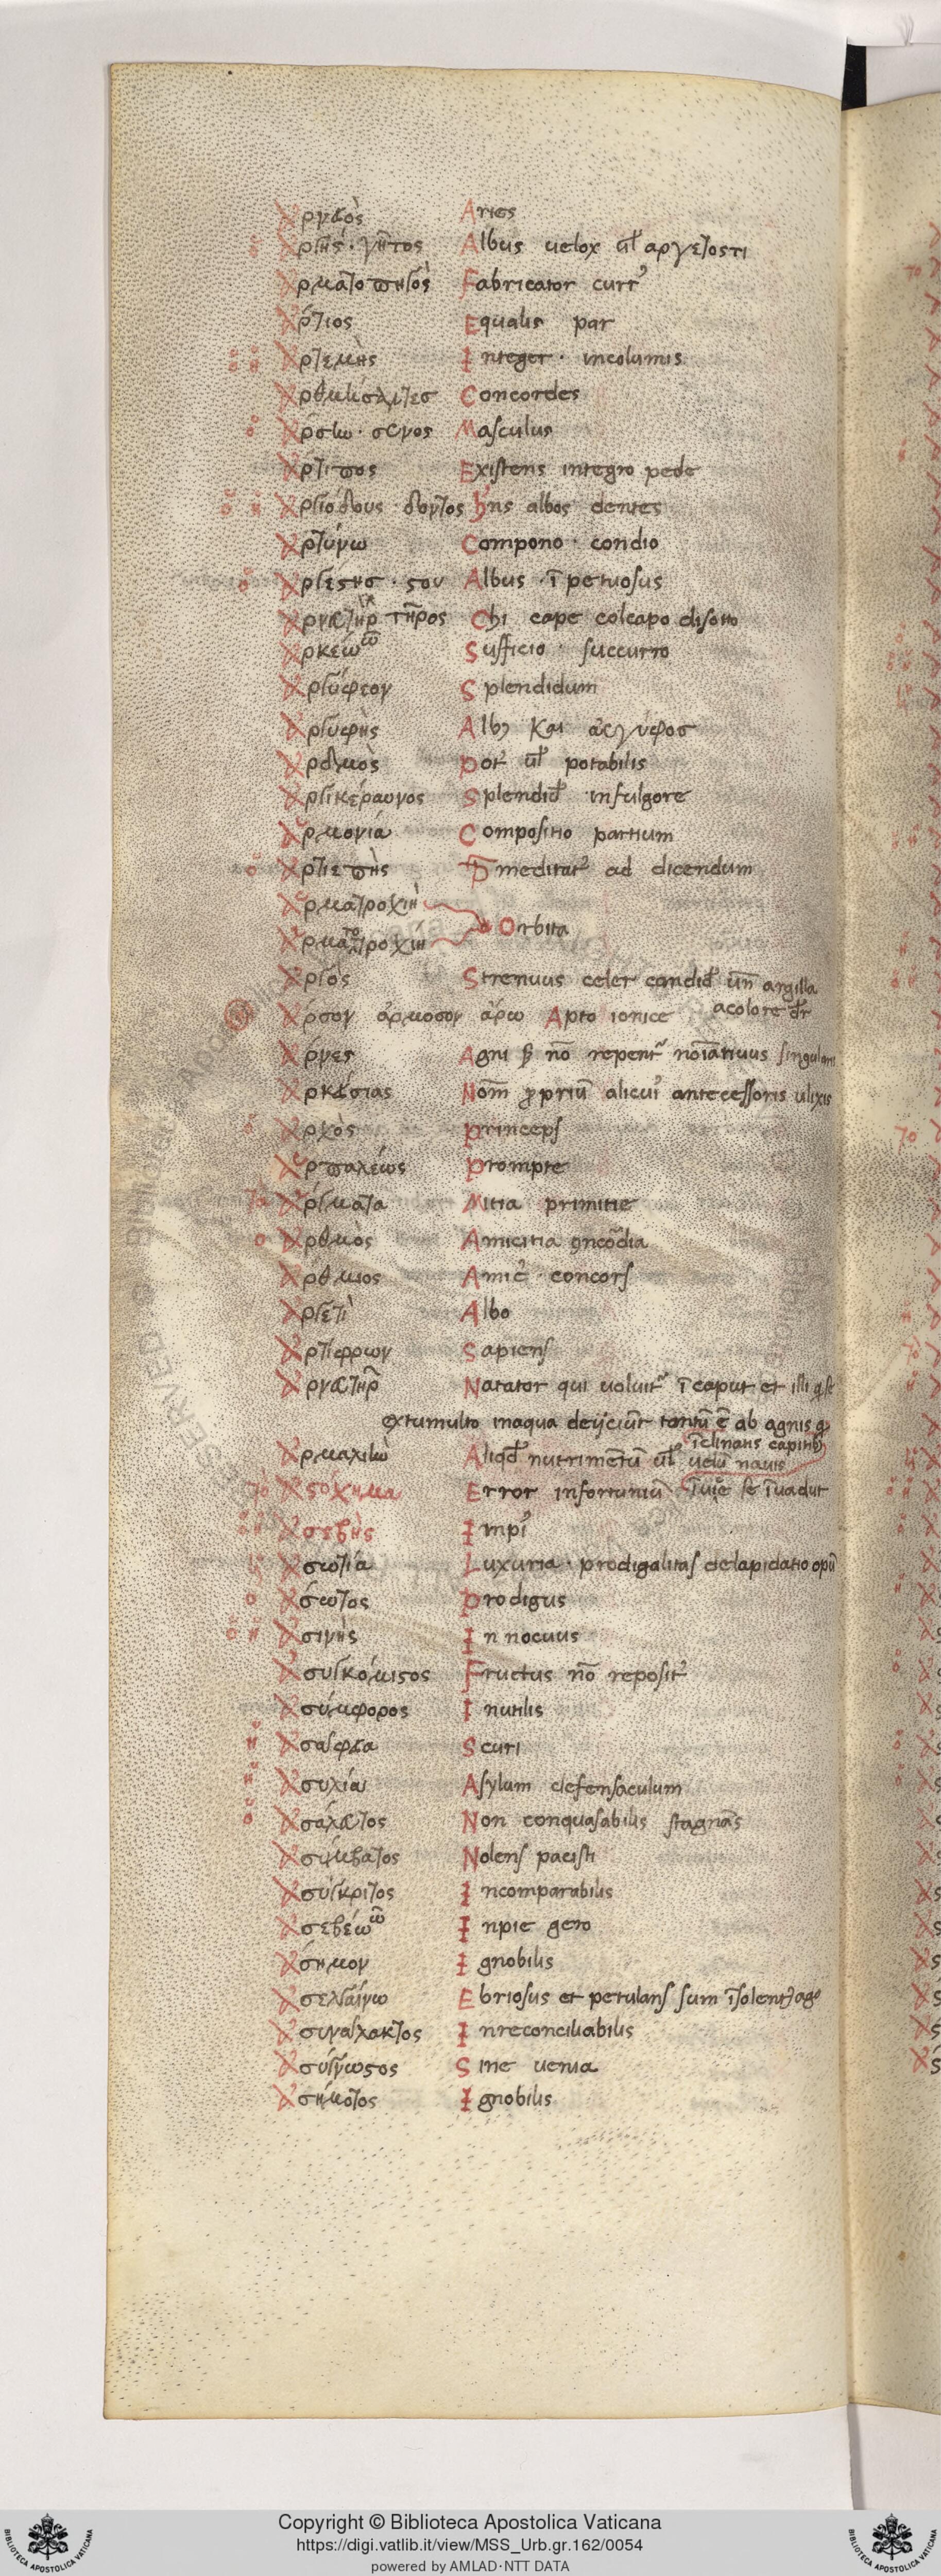 Ἀρνειὸς Aries
Ἀργὴς · γῆτος Albus uelox ul̄ αργεστοστι
Ἁρματοπηγὸς Fabricator curr᾽
Ἄρτιος Equalis par
Ἀρτεμὴς Integer · incolumis
Ἀρθμήσαντες Concordes
Ἄρσην · σενος Masculus
Ἀρτιπος Existens integro pede
Ἀργιοδους · δοντος hn̄s albos dentes
Ἀρτύνω Compono · condio
Ἀργεστησ · στου Albus · ī petuosus
Ἀρνευτὴρ τῆρος Chi cape colcapo disotto
Ἀρκέω Sufficio · succurro
Ἀργύφεον Splendidum
Ἀργυφὴς Alb9 και ἀργύφοσ
Pot᾽ ul̄ potabilis
Ἀργικέραυνος Splendid᾽ infulgore
Ἁρμονία Compositio partium
Ἀρτιεπὴς P̄meditat᾽ ad dicendum
Ἁρματροχιὴ
Orbita
Ἁρματοτροχιη
Ἀργός Strenuus celer candid᾽ un̄ argilla
acolore dr̄
Ἄρσον ἄρμοσον ἄρω Apto ionice
Ἄρνες Agni nō reperit᾽ noīatiuus singulari
Ἀρκείσιας Nom̄ ꝓpriū alicui᾽ antecessoris ulixis
Ἀρχὸς Princeps
Ἁρπαλέως Prompte
Ἄργματα Mitia primitie
Ἀρθμὸς Amicitia ɔncordia
Ἄρθμιος Amic᾽ · concors
Ἀργετὶ Albo
Ἀρτίφρων Sapiens
Ἀρνευτὴρ Natator qui uoluit᾽ ī caput et illi
extumulto inaqua deijciūt tantū ē ab agnis
īclinatis capitib9
Aliqd̄ nutrimētū ul̄ uelū nauis
Ἀστόχημα Error infortuniū īuicē se īuadūt
Ἀσεβὴς Impi᾽
Ἀσωτία Luxuria · prodigalitas delapidatio opū
Ἄσωτος Prodigus
Ἀσινὴς Innocuus
Ἀσυγκόμιστος Fructus nō reposit᾽
Ἀσύμφορος Inutilis
Ἀσαφεα Scuri
Ἀσυλία Asylum defensaculum
Ἀσάλευτος Non conquasabilis stagnās
Ἀσύμβατος Nolens pacisti
Ἀσύγκριτος Incomparabilis
Ἀσεβέω Inpie gero
Ἄσημον Ignobilis
Ἀσελγαίνω Ebriosus et petulans sum īsolent᾽ ago
Ἀσυναλλακτος Inreconciliabilis
Ἀσύγγνωστος Sine uenia
Ἀσήμαντος Ignobilis
Copyright © Biblioteca Apostolica Vaticana
https://digi.vatlib.it/view/MSS_Urb.gr.162/0054
powered by AMLAD·NTT DATA